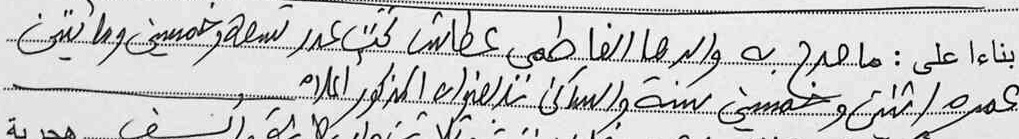 بناءا على : ما صرح به والدها الفاطمي عطاش تحت عدد تسعة وخمسين ومائتين
عمره اثنتين وخمسين سنة والساكن بالعنوان المذكور أعلاه
وألف هجرية